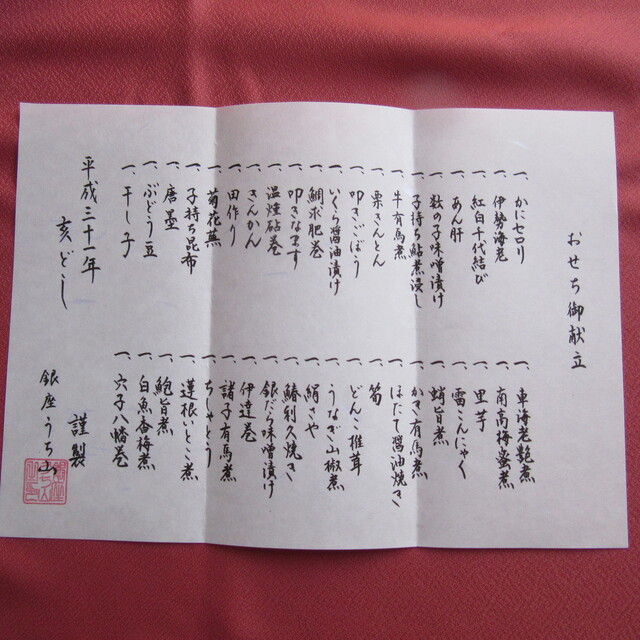 おせち御献立
一、かにセロリ
一、伊勢海老
一、紅白千代結び
一、あん肝
一、数の子味噌漬け
一、子持ち鮎煮浸し
一、牛有馬煮
一、栗きんとん
一、叩きごぼう
一、いくら醤油漬け
一、鯛求肥巻
一、叩きなます
一、温燻砧巻
一、きんかん
一、田作り
一、菊花蕪
一、子持ち昆布
一、唐墨
一、ぶどう豆
一、干し子
一、車海老艶煮
一、南高梅蜜煮
一、里芋
一、雷こんにゃく
一、蛸旨煮
一、かき有馬煮
一、ほたて醤油焼き
一、筍
一、どんこ椎茸
一、うなぎ山椒煮
一、絹さや
一、鰆利久焼き
一、銀だら味噌漬け
一、伊達巻
一、諸子有馬煮
一、ちしゃとう
一、蓮根いとこ煮
一、鮑旨煮
一、白魚香梅煮
一、穴子八幡巻
平成三十一年
亥どし
謹製
銀座うち山